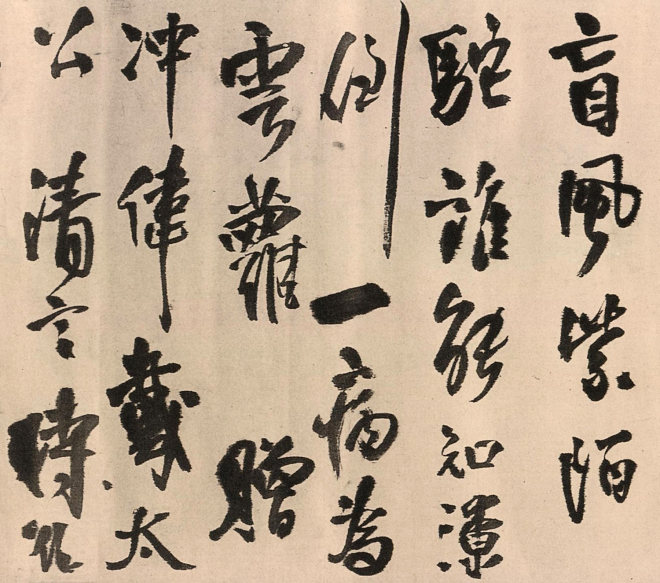 盲風紫陌
駝誰能知潦
倒一病為
雲蘿贈
冲偉戴太
公清言